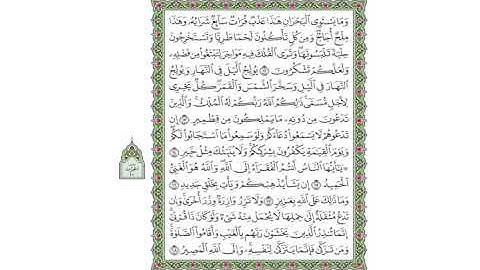 وَمَا يَسْتَوِي الْبَحْرَانِ هَٰذَا عَذْبٌ فُرَاتٌ سَائِغٌ شَرَابُهُ وَهَٰذَا
مِلْحٌ أُجَاجٌ وَمِن كُلٍّ تَأْكُلُونَ لَحْمًا طَرِيًّا وَتَسْتَخْرِجُونَ
حِلْيَةً تَلْبَسُونَهَا وَتَرَى الْفُلْكَ فِيهِ مَوَاخِرَ لِتَبْتَغُوا مِن فَضْلِهِ
وَلَعَلَّكُمْ تَشْكُرُونَ ۝١٢ يُولِجُ اللَّيْلَ فِي النَّهَارِ وَيُولِجُ
النَّهَارَ فِي اللَّيْلِ وَسَخَّرَ الشَّمْسَ وَالْقَمَرَ كُلٌّ يَجْرِي
لِأَجَلٍ مُّسَمًّى ذَٰلِكُمُ اللَّهُ رَبُّكُمْ لَهُ الْمُلْكُ وَالَّذِينَ
تَدْعُونَ مِن دُونِهِ مَا يَمْلِكُونَ مِن قِطْمِيرٍ ۝١٣ إِن
تَدْعُوهُمْ لَا يَسْمَعُوا دُعَاءَكُمْ وَلَوْ سَمِعُوا مَا اسْتَجَابُوا لَكُمْ
وَيَوْمَ الْقِيَامَةِ يَكْفُرُونَ بِشِرْكِكُمْ وَلَا يُنَبِّئُكَ مِثْلُ خَبِيرٍ ۝١٤
۞ يَا أَيُّهَا النَّاسُ أَنتُمُ الْفُقَرَاءُ إِلَى اللَّهِ وَاللَّهُ هُوَ الْغَنِيُّ
الْحَمِيدُ ۝١٥ إِن يَشَأْ يُذْهِبْكُمْ وَيَأْتِ بِخَلْقٍ جَدِيدٍ ۝١٦
وَمَا ذَٰلِكَ عَلَى اللَّهِ بِعَزِيزٍ ۝١٧ وَلَا تَزِرُ وَازِرَةٌ وِزْرَ أُخْرَىٰ وَإِن
تَدْعُ مُثْقَلَةٌ إِلَىٰ حِمْلِهَا لَا يُحْمَلْ مِنْهُ شَيْءٌ وَلَوْ كَانَ ذَا قُرْبَىٰ
إِنَّمَا تُنذِرُ الَّذِينَ يَخْشَوْنَ رَبَّهُم بِالْغَيْبِ وَأَقَامُوا الصَّلَاةَ
وَمَن تَزَكَّىٰ فَإِنَّمَا يَتَزَكَّىٰ لِنَفْسِهِ وَإِلَى اللَّهِ الْمَصِيرُ ۝١٨